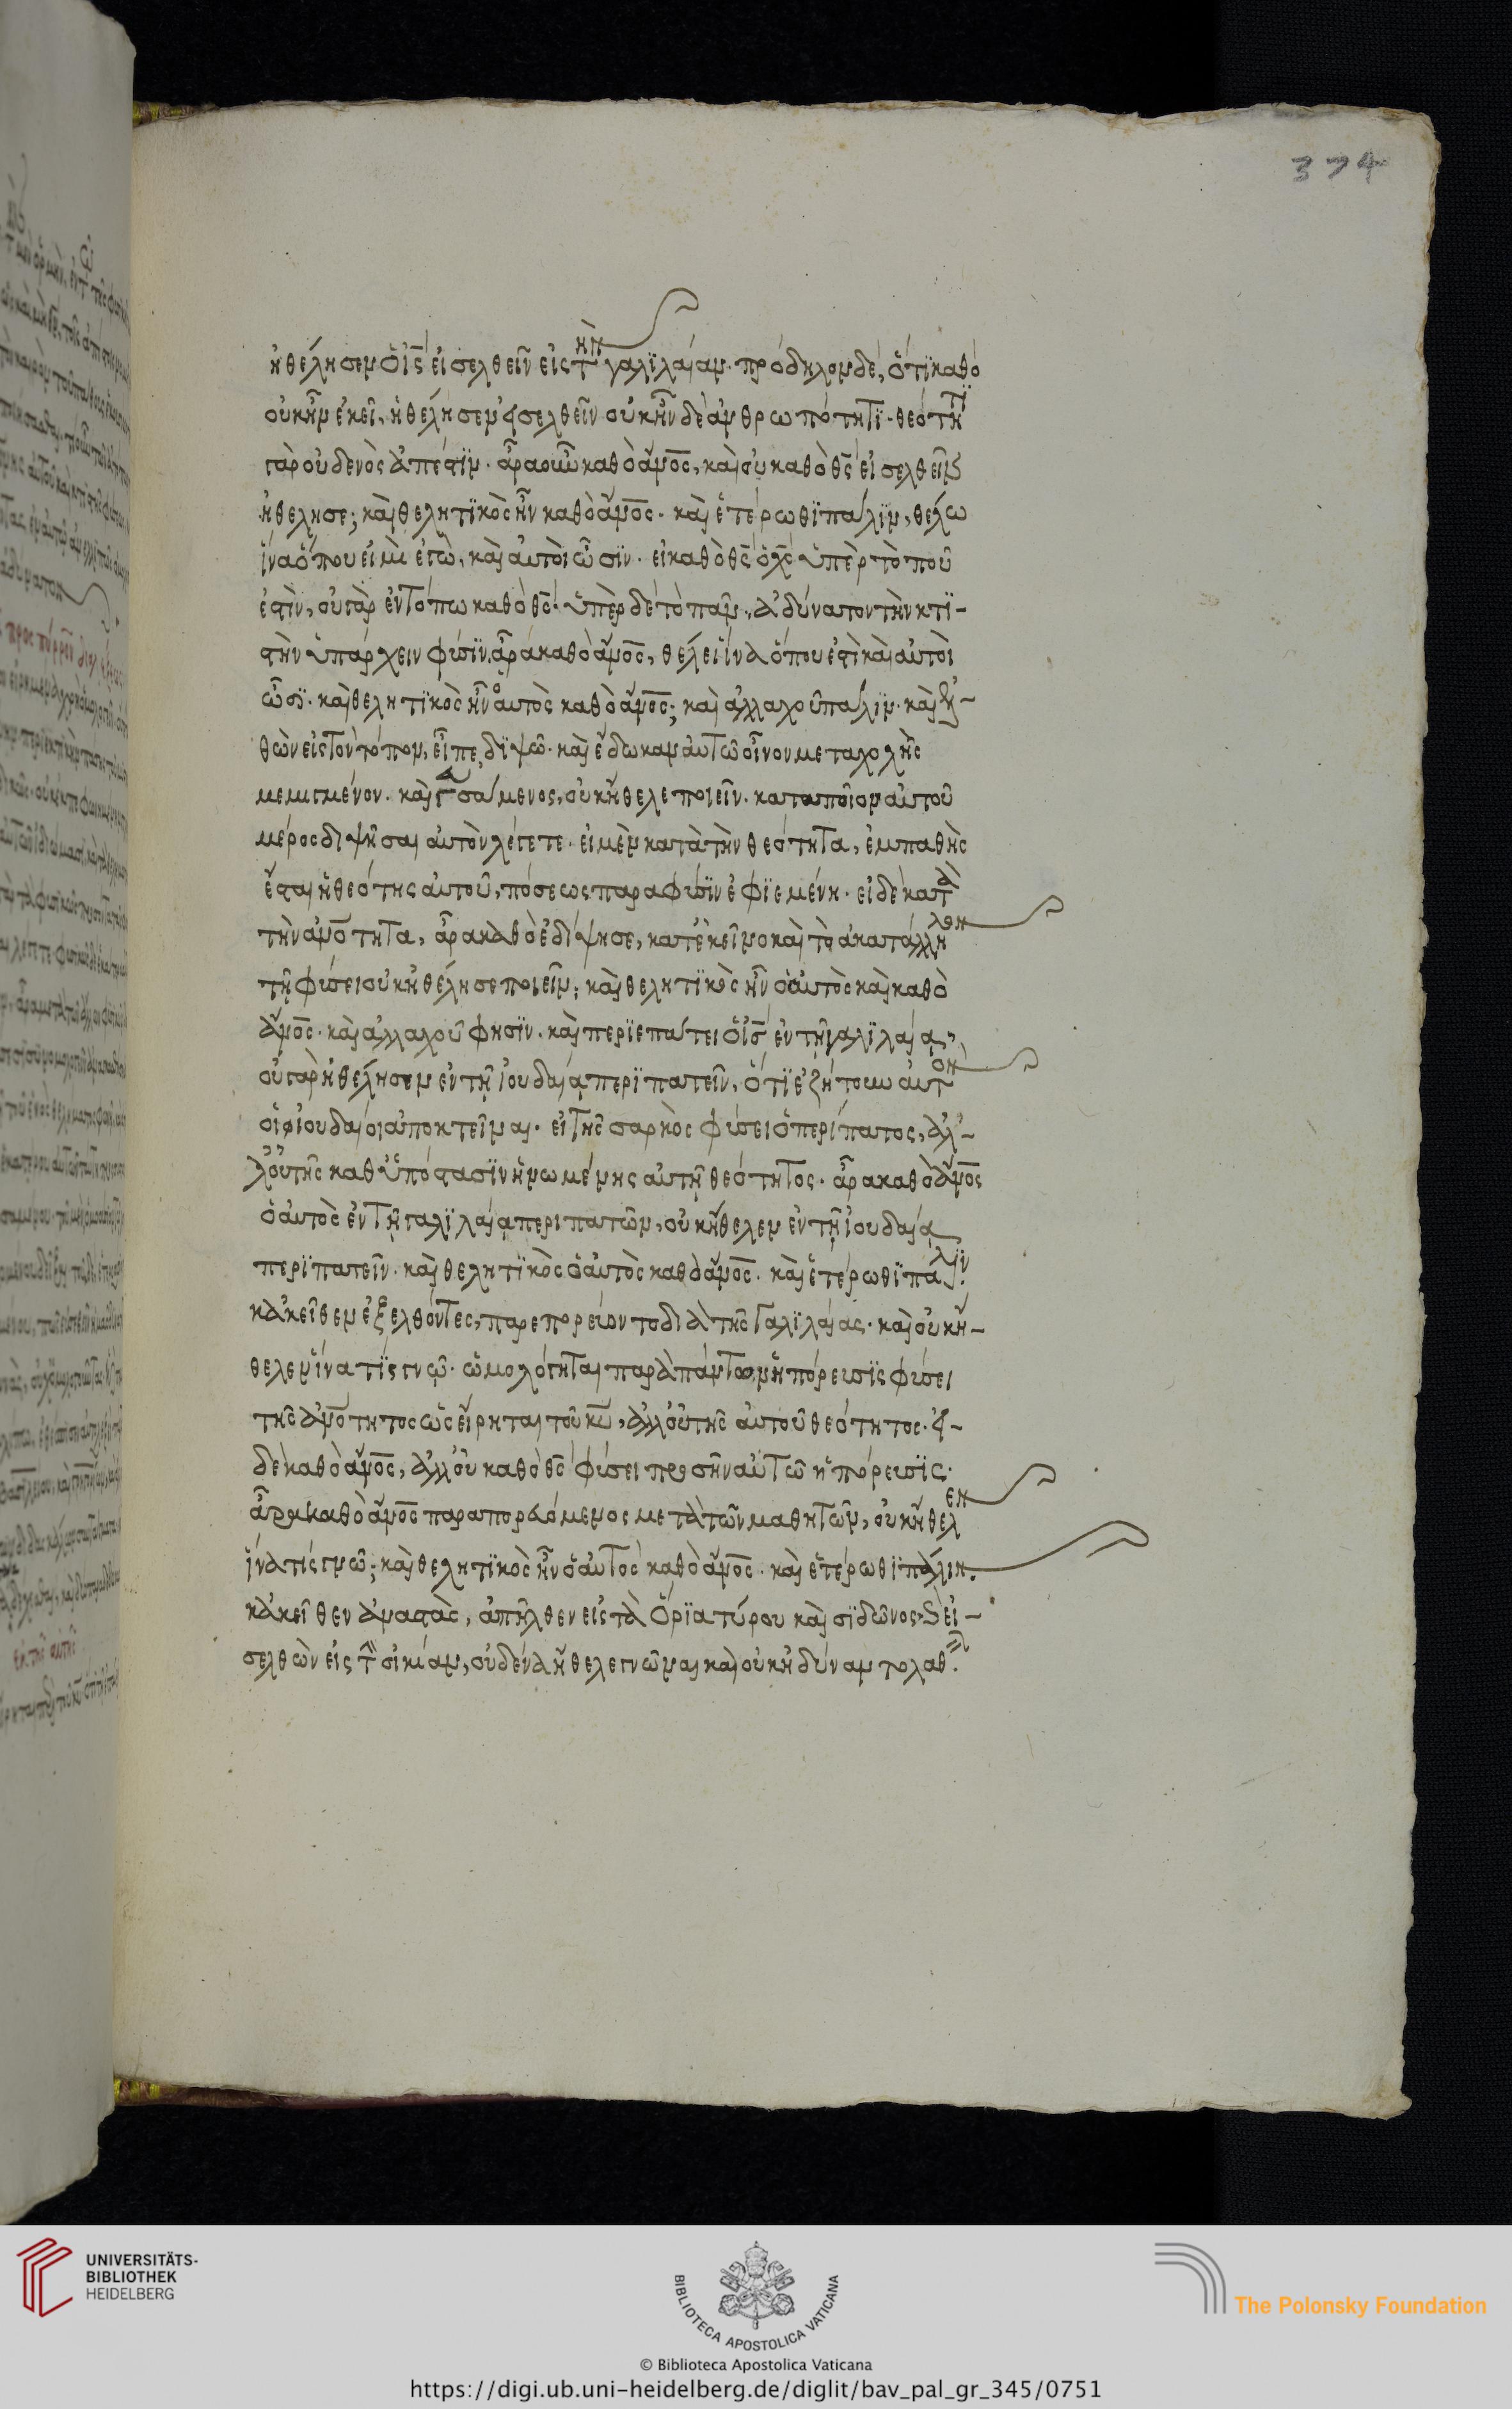 374
ἠθέλησεν ὁ ις εἰσελθεῖν εἰς τὴν γαλϊλαίαν· πρόδηλον δὲ, ὅτϊ καθὸ
οὐκ ἦν ἐκεῖ, ἠθέλησεν εἰσελθεῖν οὐκ ἦν δὲ ἀνθρωπότητϊ· θεότητϊ
γὰρ οὐδενὸς ἄπεστϊν· ἆρα οὖν καθὸ ἄνος, καὶ οὐ καθὸ θς εἰσελθεῖν
ἠθέλησε; καὶ θελητϊκὸς ἦν καθὸ ἄνος· καὶ ἑτέρωθϊ πάλϊν, θέλω
ἵνα ὅπου εἰμὶ ἐγὼ, καὶ αὐτοὶ ὦσϊν· εἰ καθὸ θς ὁ χς ὑπὲρ τὸ ποῦ
ἐστὶν, οὐ γὰρ ἐν τόπω καθὸ θς· ὑπὲρ δὲ τὸ πᾶν, ἀδύνατον τὴν κτϊ-
στὴν ὑπάρχειν φύσϊν, ἆρα καθὸ ἄνος, θέλει ἵνα ὅπου ἐστὶ καὶ αὐτοὶ
ὦσϊ· καὶ θελητϊκὸς ἦν ὁ αὐτὸς καθὸ ἄνος; καὶ ἀλλαχοῦ πάλϊν· καὶ ἐλ-
θὼν εἰς τὸν τόπον, εἶπε, δϊψῶ· καὶ ἔδωκαν αὐτῶ οἶνον μετὰ χολῆς
μεμιγμένον· καὶ γευσάμενος, οὐκ ἤθελε πιεῖν· κατὰ ποῖον αὐτοῦ
μέρος διψῆσαι αὐτὸν λέγετε· εἰ μὲν κατὰ τὴν θεότητα, ἐμπαθὴς
ἔσται ἡ θεότης αὐτοῦ, πόσεως παρὰ φύσϊν ἐφϊεμένη· εἰ δὲ κατὰ
τὴν ἀνότητα, ἆρα καθὸ ἐδίψησε, κατ' ἐκεῖνο καὶ τὸ ἀκατάλληλον
τῆ φύσει οὐκ ἠθέλησε πιεῖν; καὶ θελητϊκὸς ἦν ὁ αὐτὸς καὶ καθὸ
ἄνος· καὶ ἀλλαχοῦ φησϊν· καὶ περϊεπάτει ὁ ις ἐν τῆ γαλϊλαία,
οὐ γὰρ ἠθέλησεν ἐν τῆ ἰουδαία περϊπατεῖν, ὅτϊ ἐζήτουν αὐτὸν
οἱ ἰουδαῖοι ἀποκτεῖναι· εἰ τῆς σαρκὸς φύσει ὁ περίπατος, ἀλ-
λ' οὐ τῆς καθ' ὑπόστασϊν ἡνωμένης αὐτῆ θεότητος· ἆρα καθὸ ἄνος
ὁ αὐτὸς ἐν τῆ γαλϊλαία περιπατῶν, οὐκ ἤθελεν ἐν τῆ ἰουδαία
περϊπατεῖν· καὶ θελητϊκὸς ὁ αὐτὸς καθὸ ἄνος· καὶ ἑτέρωθϊ πάλϊν·
κἀκεῖθεν ἐξελθόντες, παρεπορεύοντο διὰ τῆς γαλϊλαίας· καὶ οὐκ ἤ-
θελεν ἵνα τϊς γνῶ· ὡμολόγηται παρὰ πάντων, ἡ πόρευσϊς φύσει
τῆς ἀνότητος ὡς εἴρηται τοῦ κυ, ἀλλ' οὐ τῆς αὐτοῦ θεότητος· εἰ
δὲ καθὸ ἄνος, ἀλλ' οὐ καθὸ θς φύσει προσῆν αὐτῶ ἡ πόρευσϊς·
ἆρα καθὸ ἄνος παραπορευόμενος μετὰ τῶν μαθητῶν, οὐκ ἤθελεν
ἵνα τίς γνῶ; καὶ θελητϊκὸς ἦν ὁ αὐτὸς καθὸ ἄνος· καὶ ἑτέρωθϊ πάλιν.
κἀκεῖθεν ἀναστὰς, ἀπῆλθεν εἰς τὰ ὅρϊα τύρου καὶ σϊδῶνος· καὶ εἰ-
σελθὼν εἰς τὴν οἰκίαν, οὐδένα ἤθελε γνῶναι καὶ οὐκ ἠδύναντο λαθεῖν.
UNIVERSITÄTS-
BIBLIOTHEK
HEIDELBERG
BIBLIOTECA APOSTOLICA VATICANA
The Polonsky Foundation
© Biblioteca Apostolica Vaticana
https://digi.ub.uni-heidelberg.de/diglit/bav_pal_gr_345/0751